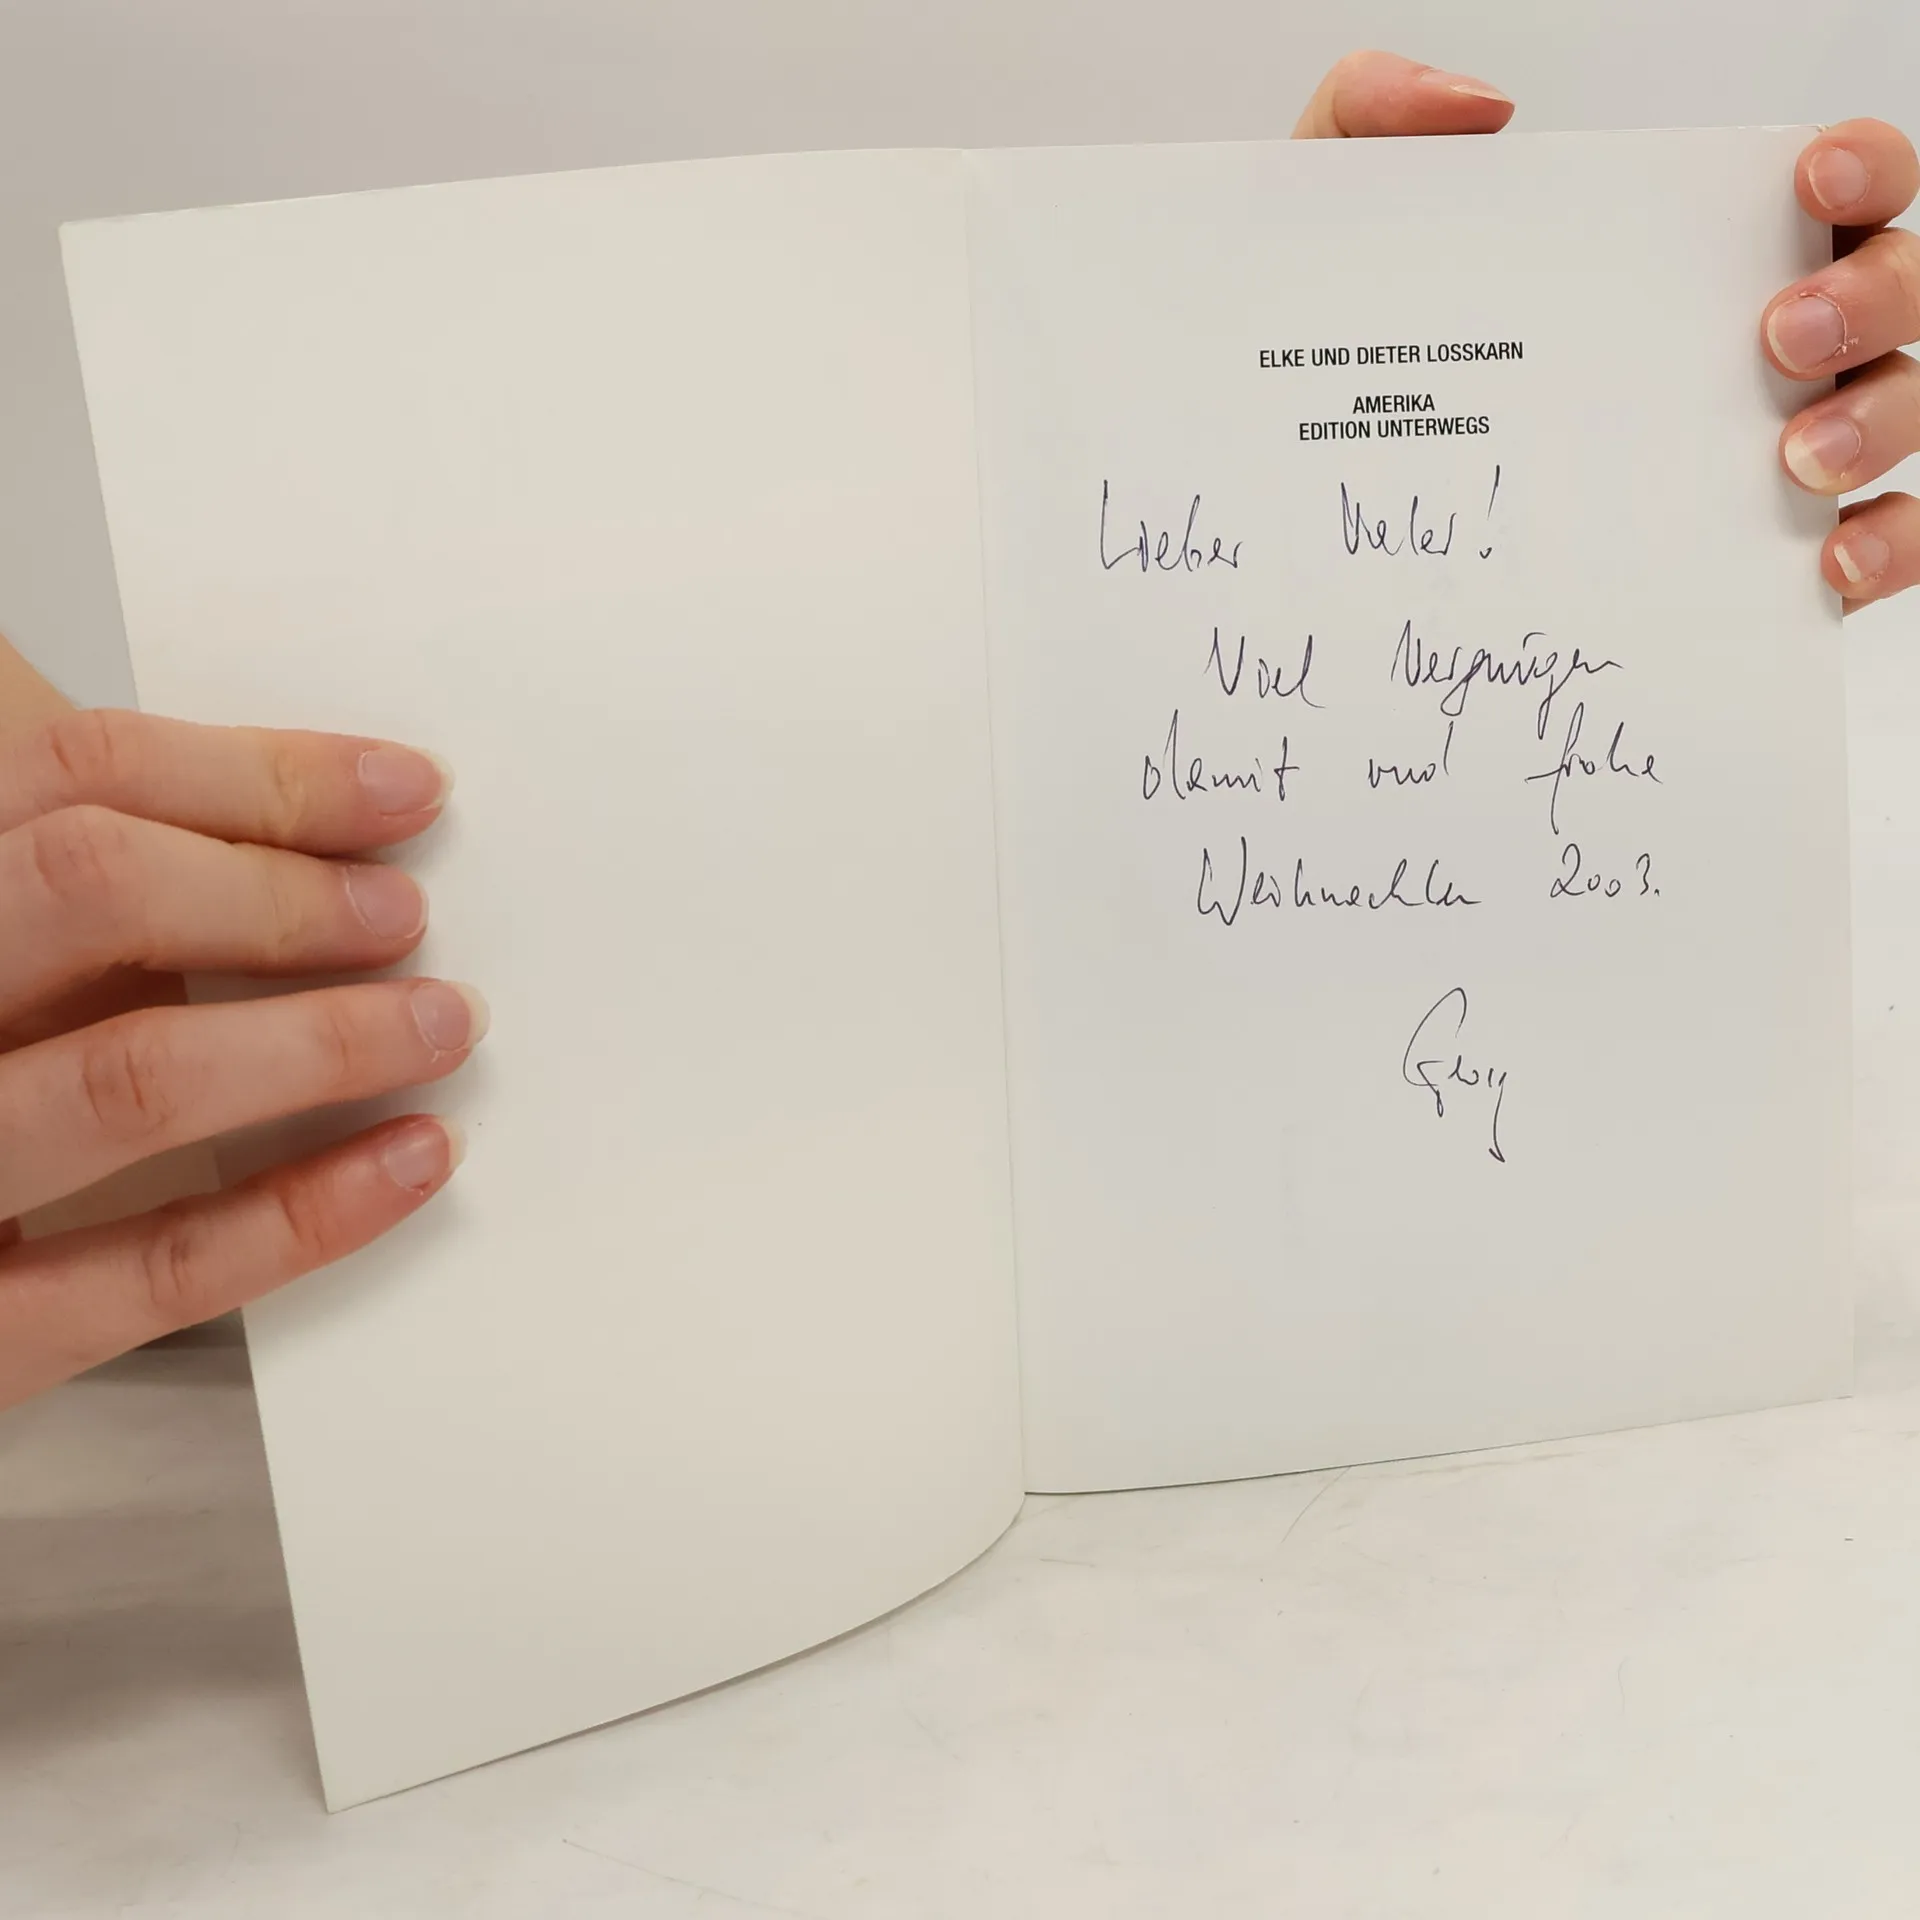 ELKE UND DIETER LOSSKARN
AMERIKA
EDITION UNTERWEGS
Lieber Vater!
Viel Vergnügen
damit und frohe
Weihnachten 2003.
Georg